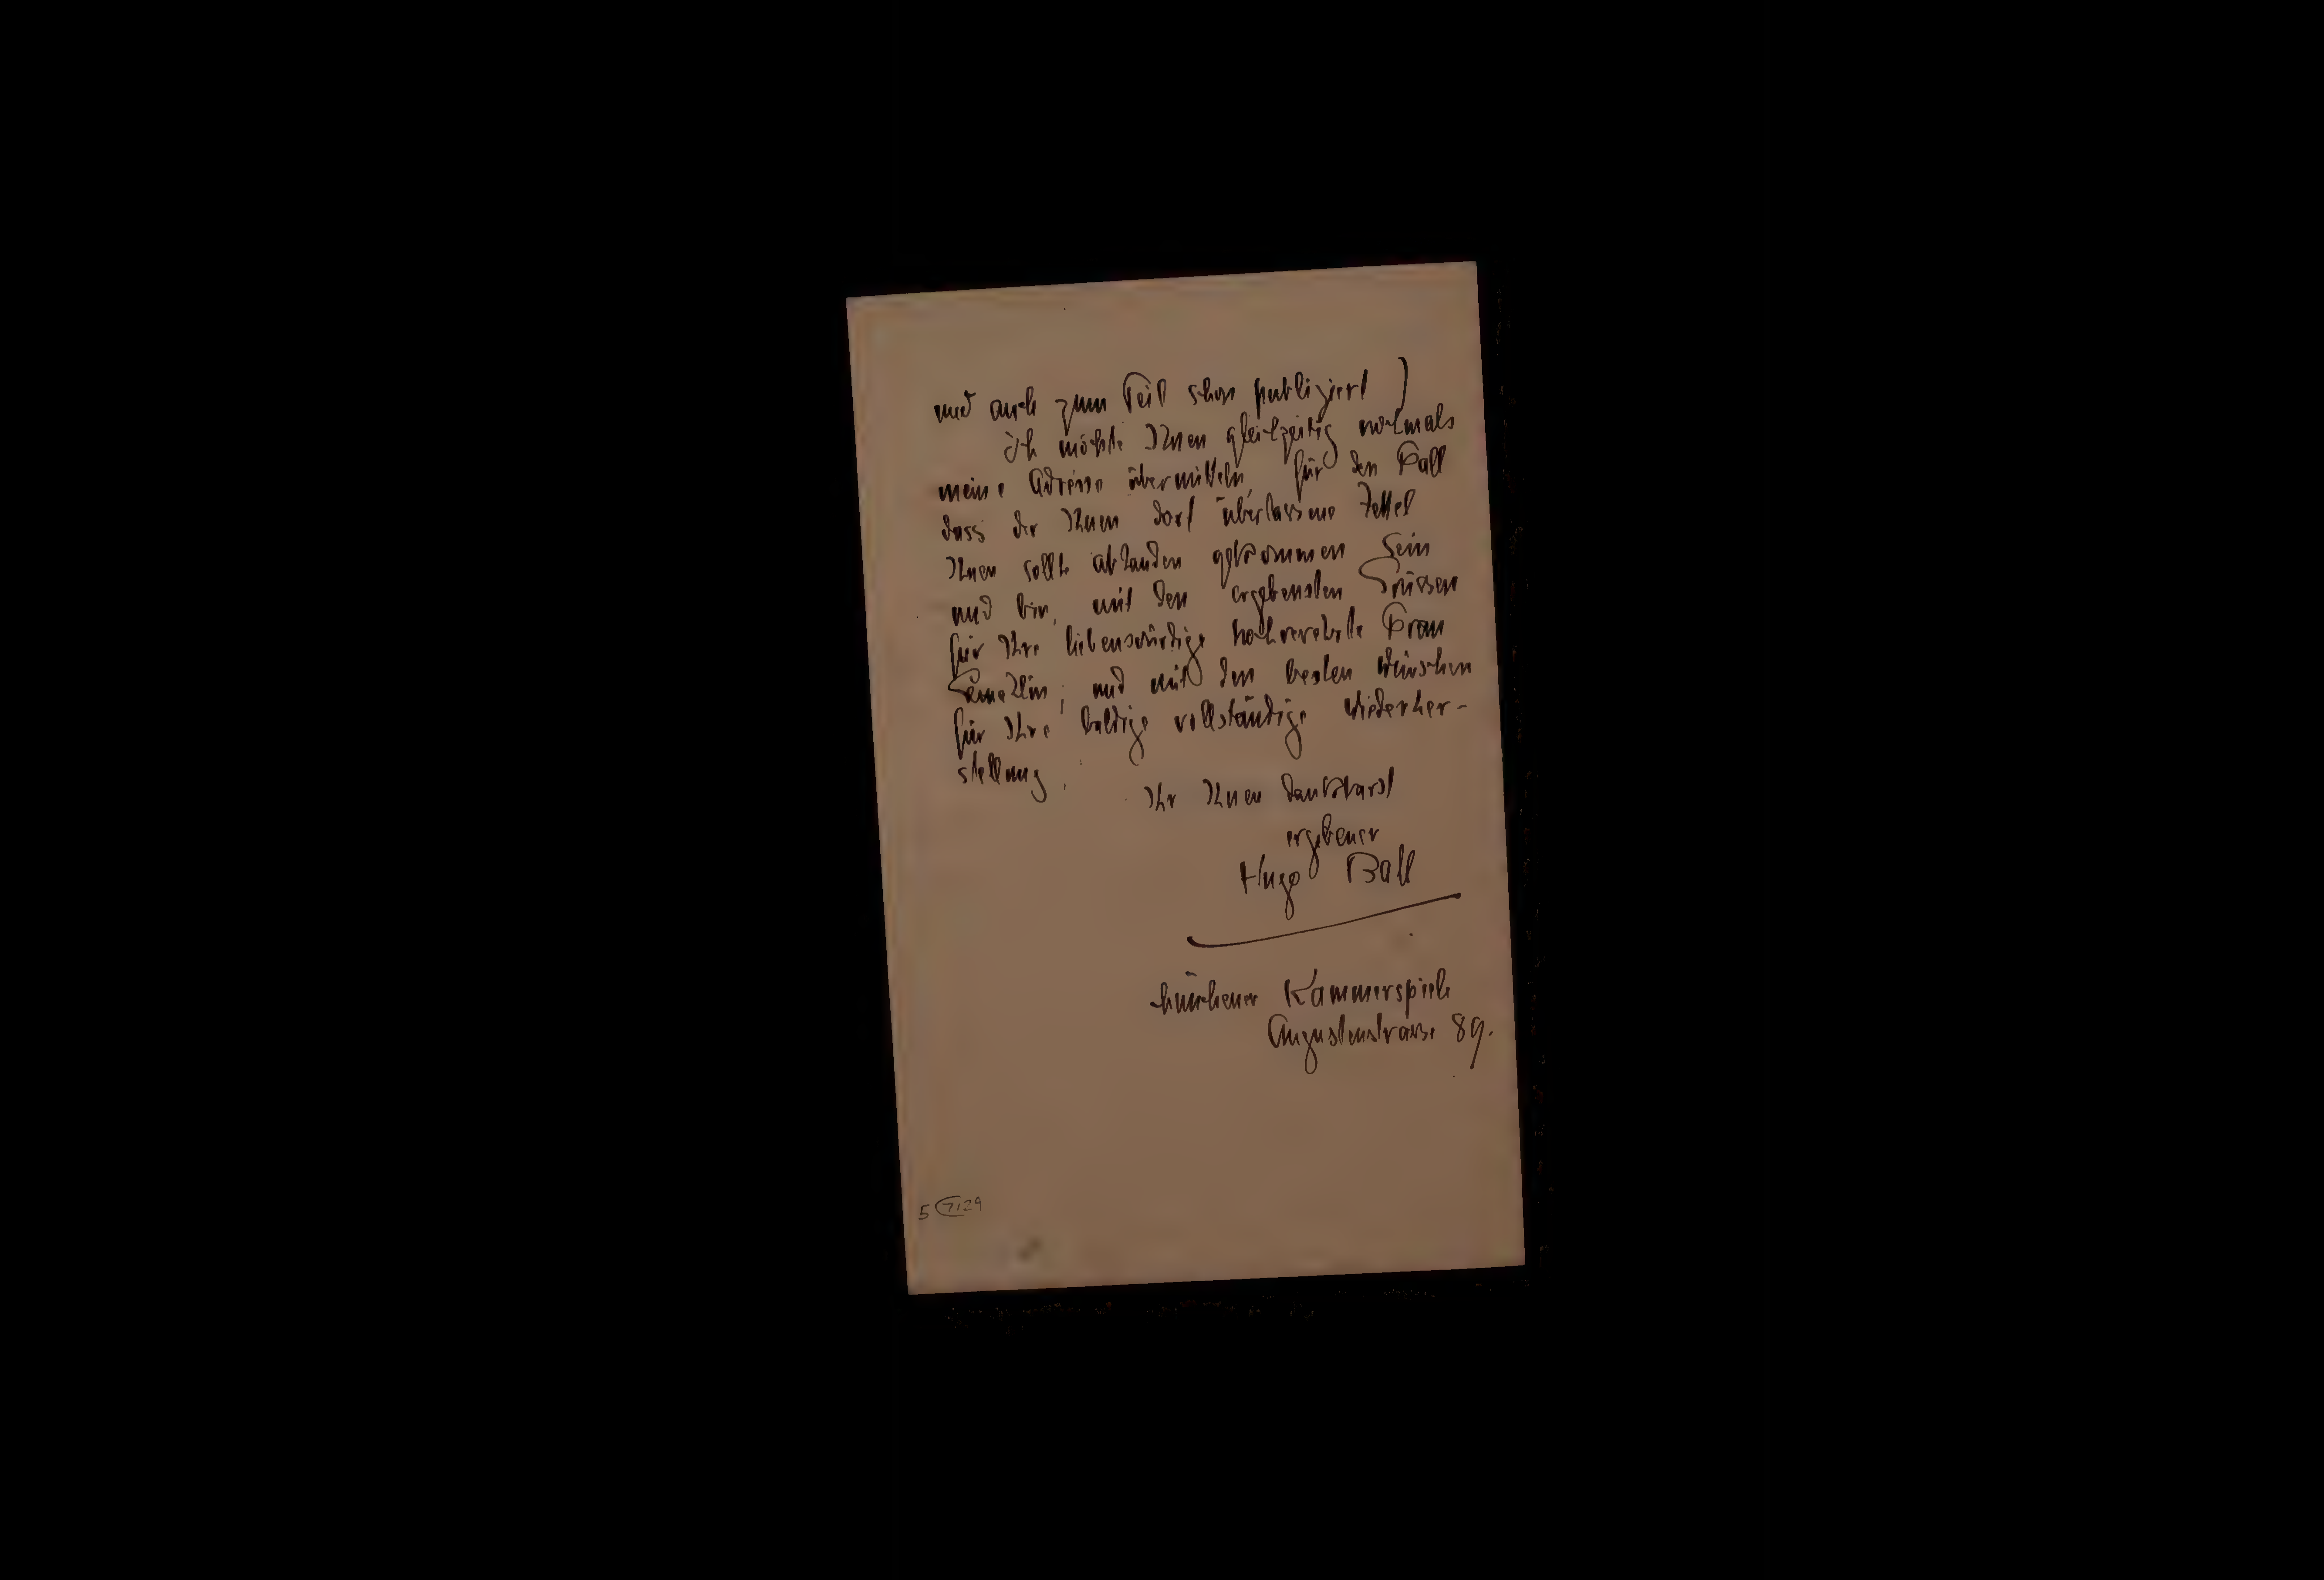 und auch zum Teil schon publiziert)
Ich möchte Ihnen gleichzeitig nochmals
meine Adresse übermitteln, für den Fall
dass der Ihnen dort überlassene Zettel
Ihnen sollte abhanden gekommen sein
und bin, mit den ergebensten Grüssen
für Ihre liebenswürdige hochverehrte Frau
Gemahlin, und mit den besten Wünschen
für Ihre baldige vollständige Wiederher-
stellung,
Ihr Ihnen dankbarst
ergebener
Hugo Ball
Münchener Kammerspiele
Augustenstrasse 89.
5 7129